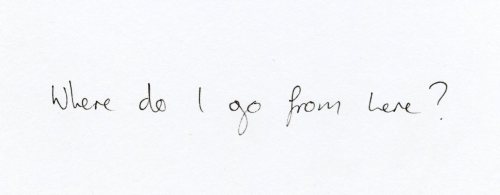 Where do I go from here?